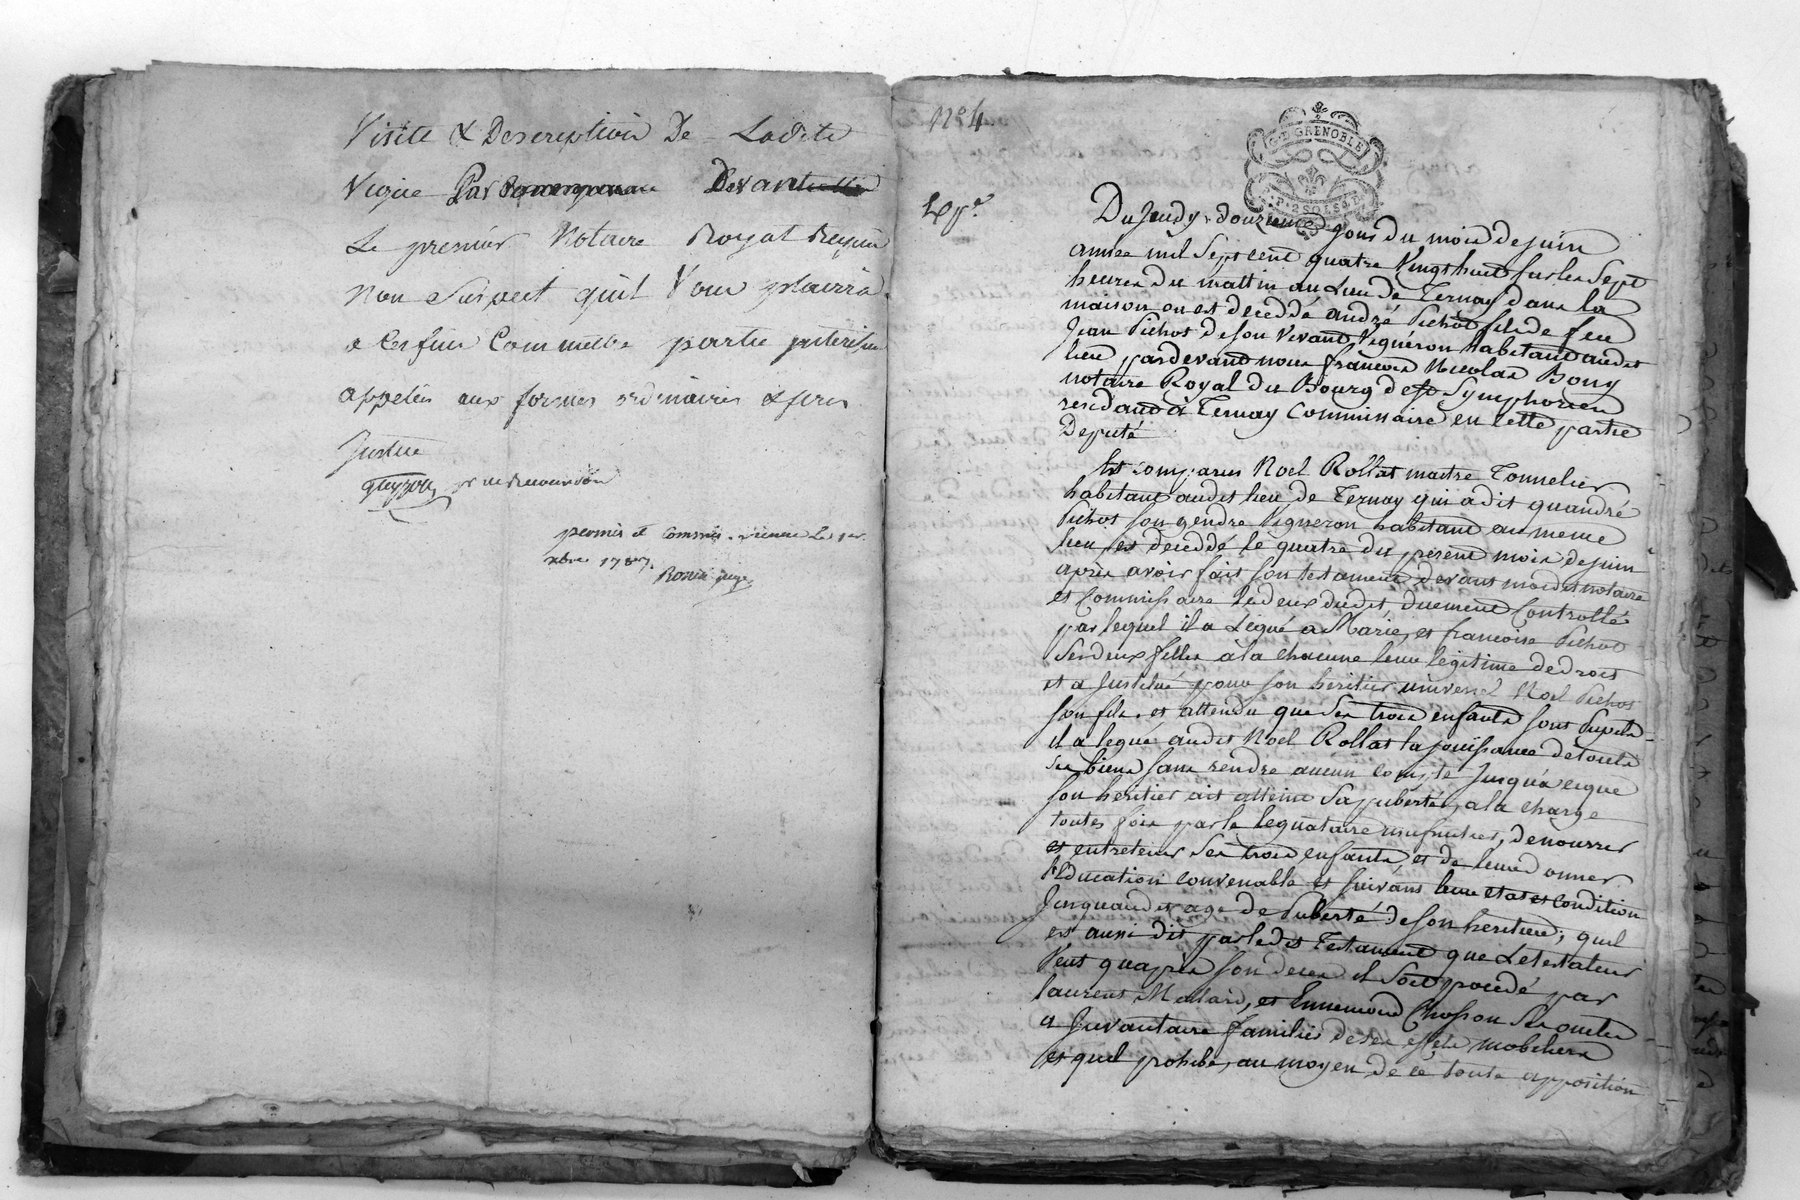 Visite & Description De Ladite
Vigne Par Devant
Le premier Notaire Royal Requis
Non Suspect quil Vous plairra
a Ces fins Commettre partie
appellés aux formes ordinaires & feres
Justice
permis et Commis. vienne Le
1787.
juge
N°4
G.D. GRENOBLE
P. 2 SOLS 4 D.
Du Jeudy douzieme jour du mois de juin
année mil Sept cent quatre Vingt huit sur les Sept
heures du mattin au Lieu de Ternay dans la
maison ou est deceddé andré Pichot fils de feu
Jean Pichot de son Vivant Vigneron habitant audit
lieu pardevant nous francois Nicolas Bony
notaire Royal du Bourg de St Symphorien
residant à Ternay Commissaire en cette partie
Deputé
Est comparu Noel Rollat maitre Tonnelier
habitant audit lieu de Ternay qui a dit quandré
Pichot son gendre Vigneron habitant au meme
lieu est deceddé le quatre du present mois de juin
après avoir fait son testament devant moidit notaire
et Commissaire le deux dudit duement Controllé
par lequel il a Legué a Marie, et francoise Pichot
Ses deux filles a la chacune leur legitime de droit
et a Institué pour son heritier universel Noel Pichot
son fils. et attendu que Ses trois enfants sont Pupils
il a legué audit Noel Rollat la jouissance de touts
Ses biens sans rendre aucun compte Jusqu'a ceque
son heritier ait atteint Sa puberté, a la charge
toutes fois par le leguataire usufruitier, de nourrir
et entretenir Ses trois enfants, et de leur donner
l'Education convenable et suivant leur etat et Condition
Jusquaudit age de Puberté de son heritier; quil
est aussi dit par ledit Testament que Le testateur
Veut quaprès son deces il Soit procédé par
laurent Mallard, et Ennemond Chosson Ses oncles
a Inventaire familier de Ses effets mobiliers
et quil prohibe, au moyen de cè toute apposition